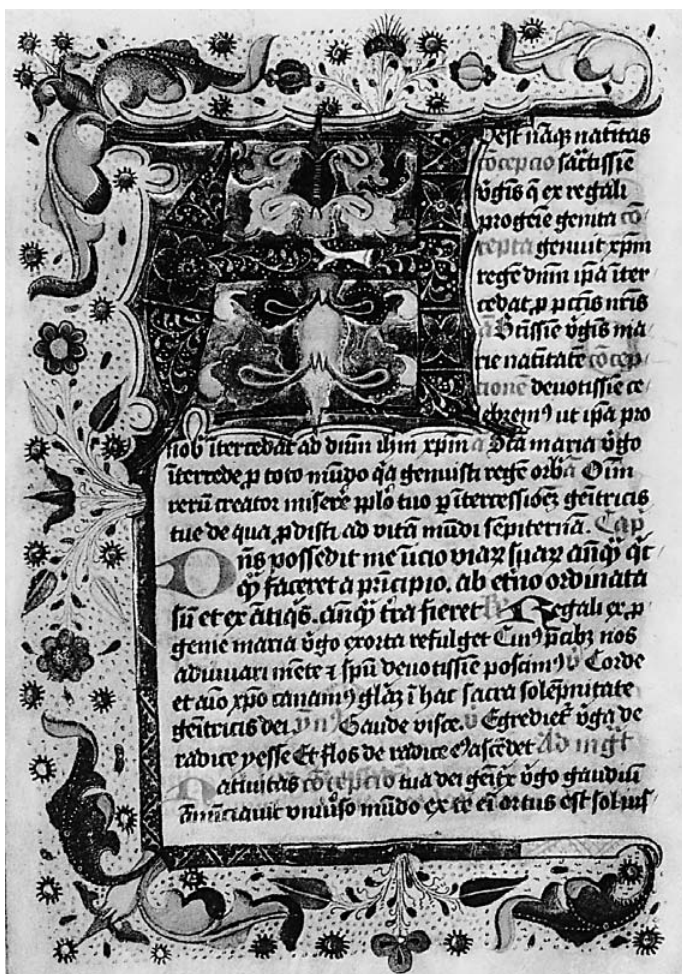 odest naq natitas
cocepcio sactissie
vgis q ex regali
progeie genita co
cepta genuit xpm
rege dnm ipa iter
cedat p pctis nris
Btissie vgis ma
rie natitate cocep
tione devotissie ce
ebrem9 ut ipa pro
nob itercedat ad dnm ihm xpm a Sta maria vgo
itercede p toto mudo qa genuisti rege orbis Oim
reru creator misere pplo tuo p itercessioez geitricis
tue de qua pdisti ad vita mudi sepiterna. Cap
Dns possedit me i icio viaz suaz anq qc
q faceret a pricipio. ab etno ordinata
su et ex atiqs. anq tra fieret R Regali ex p
genie maria vgo exorta refulget Cui9 pcibz nos
adiuuari mete z spu devotissie poscim9 v Corde
et aio xpo canam9 glaz i hac sacra solepnitate
geitricis dei yn9 Gaude visce. v Egrediet vga de
radice yesse Et flos de radice e9 ascedet Ad mgt
Natiuitas cocepcio tua dei geitx vgo gaudiu
annuciavit vniuso mudo ex te ei ortus est sol ius